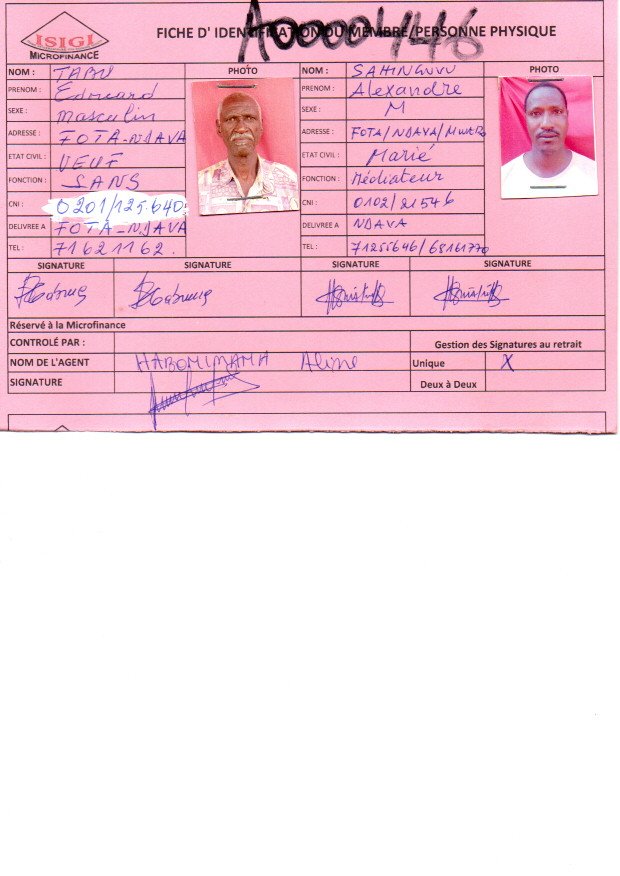 ISIGI
MICROFINANCE
FICHE D' IDENTIFICATION DU MEMBRE/PERSONNE PHYSIQUE
A0000446
NOM : TABU
PRENOM : Edouard
SEXE : Masculin
ADRESSE : FOTA-NDAVA
ETAT CIVIL : VEUF
FONCTION : SANS
CNI : 0201/125.640
DELIVREE A FOTA-NDAVA
TEL : 71621162.
PHOTO
NOM : SAHINGUVU
PRENOM : Alexandre
SEXE : M
ADRESSE : FOTA/NDAVA/MWARO
ETAT CIVIL : Marié
FONCTION : Médiateur
CNI : 0102/21546
DELIVREE A NDAVA
TEL : 71255646/68161770
PHOTO
SIGNATURE SIGNATURE SIGNATURE SIGNATURE
Réservé à la Microfinance
CONTROLÉ PAR :
Gestion des Signatures au retrait
NOM DE L'AGENT HABONIMANA Aline
Unique X
SIGNATURE
Deux à Deux